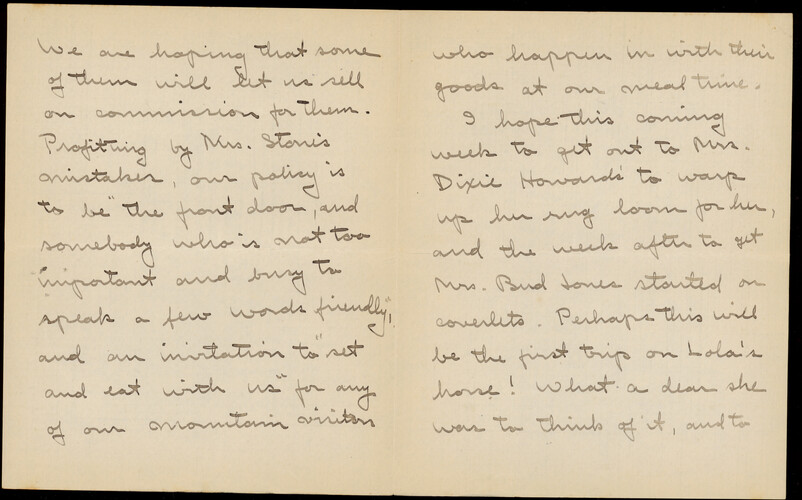 We are hoping that some
of them will let us sell
on commission for them.
Profiting by Mrs. Stone's
mistakes, our policy is
to be "the front door, and
somebody who is not too
important and busy to
speak a few words friendly",
and an invitation to "set
and eat with us" for any
of our mountain visitors
who happen in with their
goods at our meal time.
I hope this coming
week to get out to Mrs.
Dixie Howard's to warp
up her rug loom for her,
and the week after to get
Mrs. Bud Jones started on
coverlets. Perhaps this will
be the first trip on Lola's
horse! What a dear she
was to think of it, and to